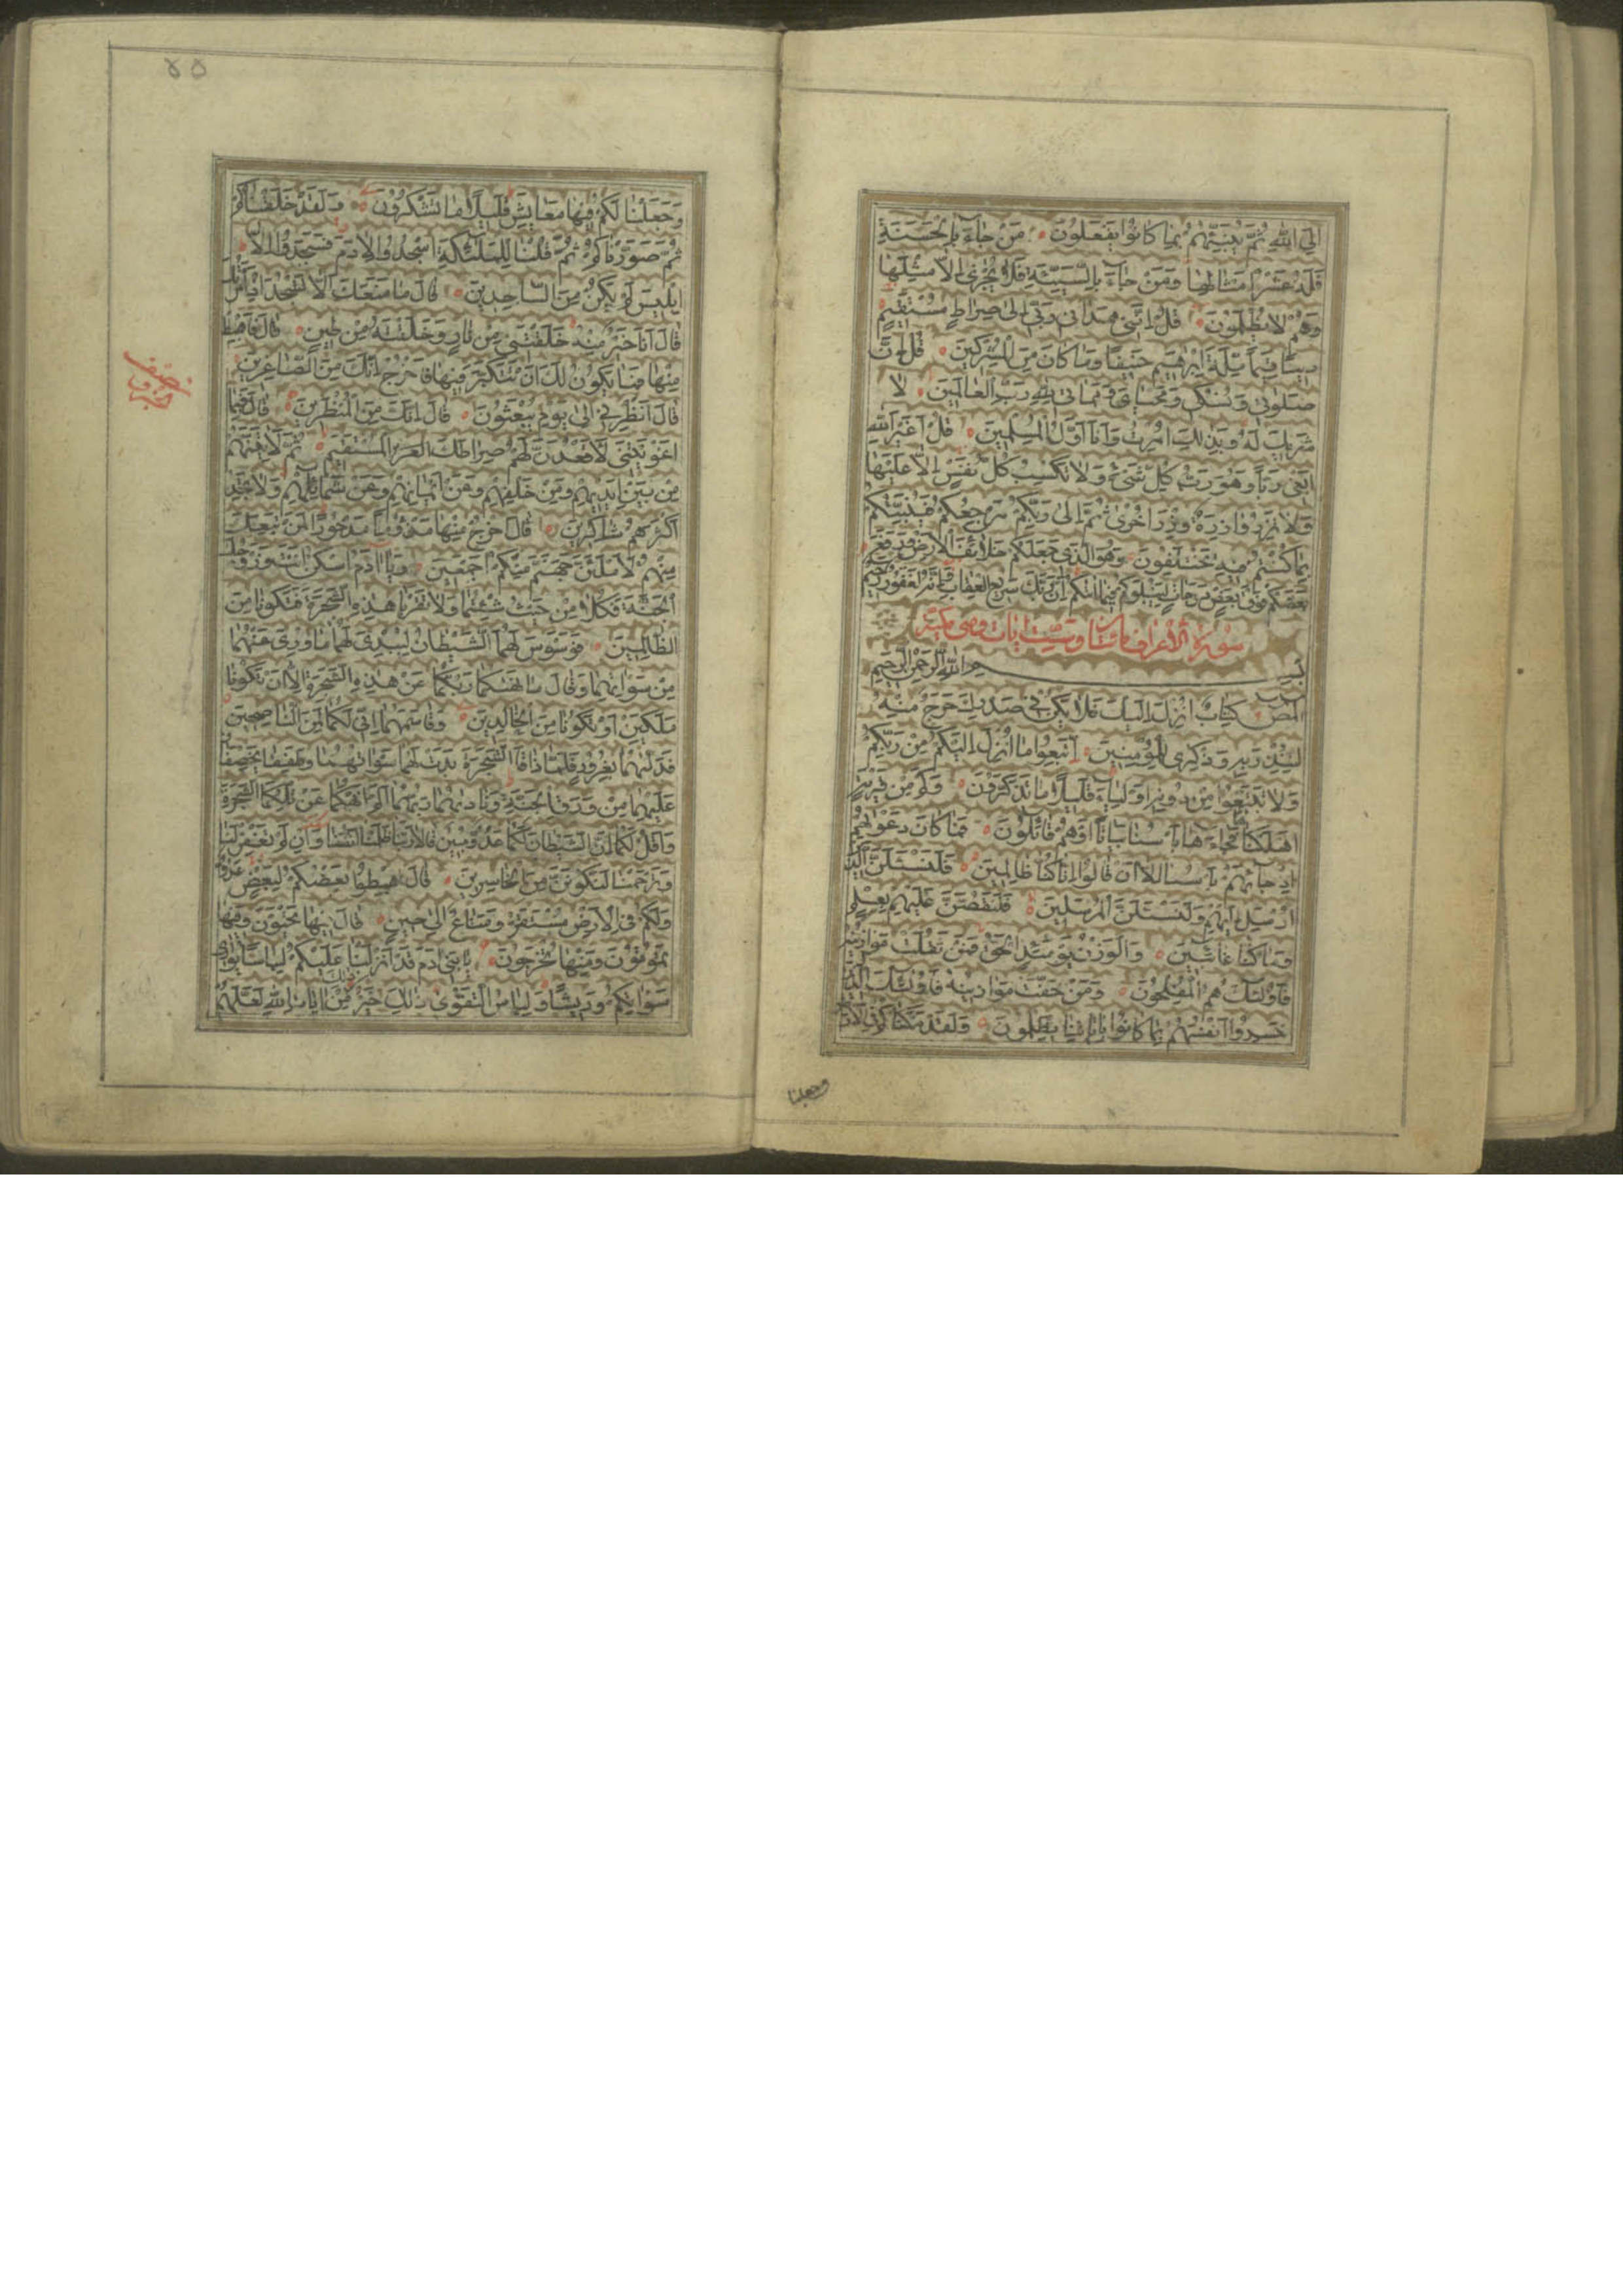 الى الله ثم ينبئهم بما كانوا يفعلون من جاء بالحسنة
فله عشر امثالها ومن جاء بالسيئة فلا يجزى الا مثلها
وهم لا يظلمون قل اننى هدانى ربى الى صراط مستقيم
دينا قيما ملة ابرهيم حنيفا وما كان من المشركين قل ان
صلوتى ونسكى ومحياى ومماتى لله رب العالمين لا
شريك له وبذلك امرت وانا اول المسلمين قل اغير الله
ابغى ربا وهو رب كل شىء ولا تكسب كل نفس الا عليها
ولا تزر وازرة وزر اخرى ثم الى ربكم مرجعكم فينبئكم
بما كنتم فيه تختلفون وهو الذى جعلكم خلائف الارض ورفع
بعضكم فوق بعض درجات ليبلوكم فيما اتيكم ان ربك سريع العقاب وانه لغفور رحيم
سورة الاعراف مائتان وست ايات وهى مكية
بسم الله الرحمن الرحيم
المص كتاب انزل اليك فلا يكن فى صدرك حرج منه
لتنذر به وذكرى للمؤمنين اتبعوا ما انزل اليكم من ربكم
ولا تتبعوا من دونه اولياء قليلا ما تذكرون وكم من قرية
اهلكناها فجاءها باسنا بياتا او هم قائلون فما كان دعويهم
اذ جائهم باسنا الا ان قالوا انا كنا ظالمين فلنسئلن الذين
ارسل اليهم ولنسئلن المرسلين فلنقصن عليهم بعلم
وما كنا غائبين والوزن يومئذ الحق فمن ثقلت موازينه
فاولئك هم المفلحون ومن خفت موازينه فاولئك الذين
خسروا انفسهم بما كانوا باياتنا يظلمون ولقد مكناكم فى الارض
وجعلنا
وجعلنا لكم فيها معايش قليلا ما تشكرون ولقد خلقناكم
ثم صورناكم ثم قلنا للملئكة اسجدوا لادم فسجدوا الا
ابليس لم يكن من الساجدين قال ما منعك الا تسجد اذ امرتك
قال انا خير منه خلقتنى من نار وخلقته من طين قال فاهبط
منها فما يكون لك ان تتكبر فيها فاخرج انك من الصاغرين
قال انظرنى الى يوم يبعثون قال انك من المنظرين قال فبما
اغويتنى لاقعدن لهم صراطك المستقيم ثم لاتينهم
من بين ايديهم ومن خلفهم وعن ايمانهم وعن شمائلهم ولا تجد
اكثرهم شاكرين قال اخرج منها مذؤما مدحورا لمن تبعك
منهم لاملئن جهنم منكم اجمعين ويا ادم اسكن انت وزوجك
الجنة فكلا من حيث شئتما ولا تقربا هذه الشجرة فتكونا من
الظالمين فوسوس لهما الشيطان ليبدى لهما ما ورى عنهما
من سواتهما وقال ما نهيكما ربكما عن هذه الشجرة الا ان تكونا
ملكين او تكونا من الخالدين وقاسمهما انى لكما لمن الناصحين
فدليهما بغرور فلما ذاقا الشجرة بدت لهما سواتهما وطفقا يخصفان
عليهما من ورق الجنة وناديهما ربهما الم انهكما عن تلكما الشجرة
واقل لكما ان الشيطان لكما عدو مبين قالا ربنا ظلمنا انفسنا وان لم تغفر لنا
وترحمنا لنكونن من الخاسرين قال اهبطوا بعضكم لبعض عدو
ولكم فى الارض مستقر ومتاع الى حين قال فيها تحيون وفيها
تموتون ومنها تخرجون يا بنى ادم قد انزلنا عليكم لباسا يوارى
سواتكم وريشا ولباس التقوى ذلك خير ذلك من ايات الله لعلهم